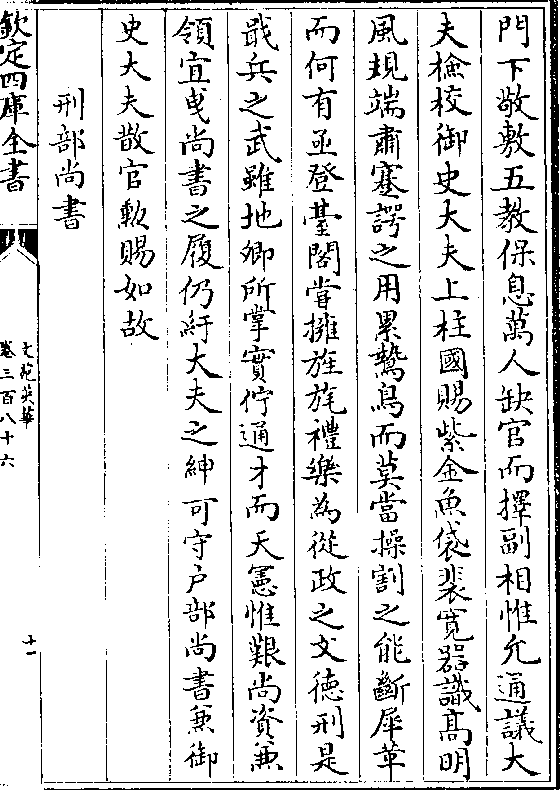 門下敬敷五教保息萬人缺官而擇副相惟允通議大
夫檢校御史大夫上柱國賜紫金魚袋裴寛器識髙明
風規端肅塞諤之用累鷙鳥而莫當操割之能斷犀革
而何有亟登臺閣嘗擁旌旄禮樂為從政之文徳刑是
戢兵之武雖地卿所掌實佇通才而天憲惟艱尚資兼
領宜曵尚書之履仍紆大夫之紳可守户部尚書兼御
史大夫散官勲賜如故
刑部尚書
欽定四庫全書
文苑英華
卷三百八十六
十一